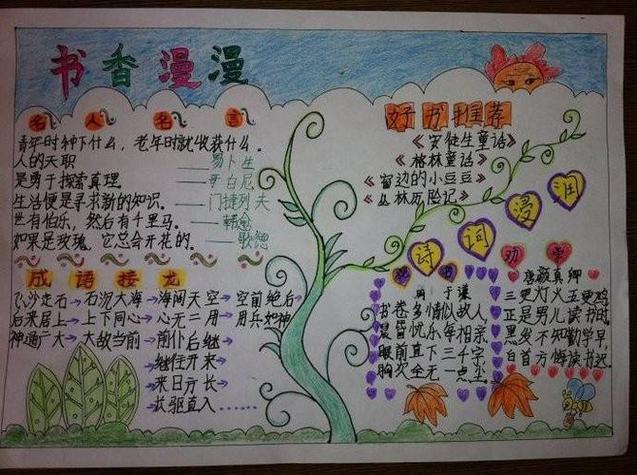 书香漫漫
名人名言
青年时种下什么，老年时就收获什么。
——易卜生
人的天职
是勇于探索真理
——哥白尼
生活便是寻求新的知识。——门捷列夫
世有伯乐，然后有千里马。——韩愈
如果是玫瑰，它总会开花的。——歌德
成语接龙
飞沙走石→石沉大海→海阔天空→空前绝后
后来居上→上下同心→心无二用→用兵如神
神通广大→大敌当前→前仆后继
继往开来
来日方长
长驱直入……
好书推荐
《安徒生童话》
《格林童话》
《窗边的小豆豆》
《丛林历险记》
诗词浸润
明 于谦
书卷多情似故人，
晨昏忧乐每相亲。
眼前直下三千字，
胸次全无一点尘。
劝学
唐 颜真卿
三更灯火五更鸡，
正是男儿读书时。
黑发不知勤学早，
白首方悔读书迟。